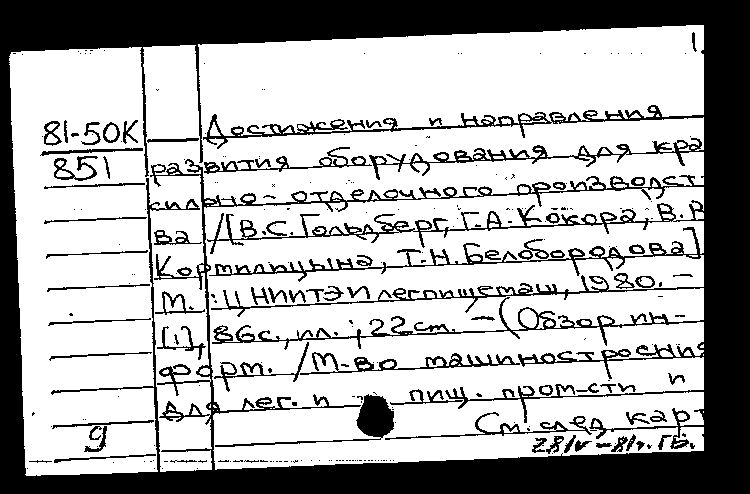 1.
81-50К
851
Достижения и направления
развития оборудования для кра
сильно-отделочного производст-
ва /[В.С. Гольдберг, Г.А. Кокора, В.В
Кормильцына, Т.Н. Белобородова]
М.: ЦНИИТЭИлегпищемаш, 1980. –
[1], 86с., ил.; 22см. – (Обзор. ин-
форм. / М-во машиностроения
для лег. и пищ. пром-сти и
См. след. карт
9
28/IV-81г. ГБ.